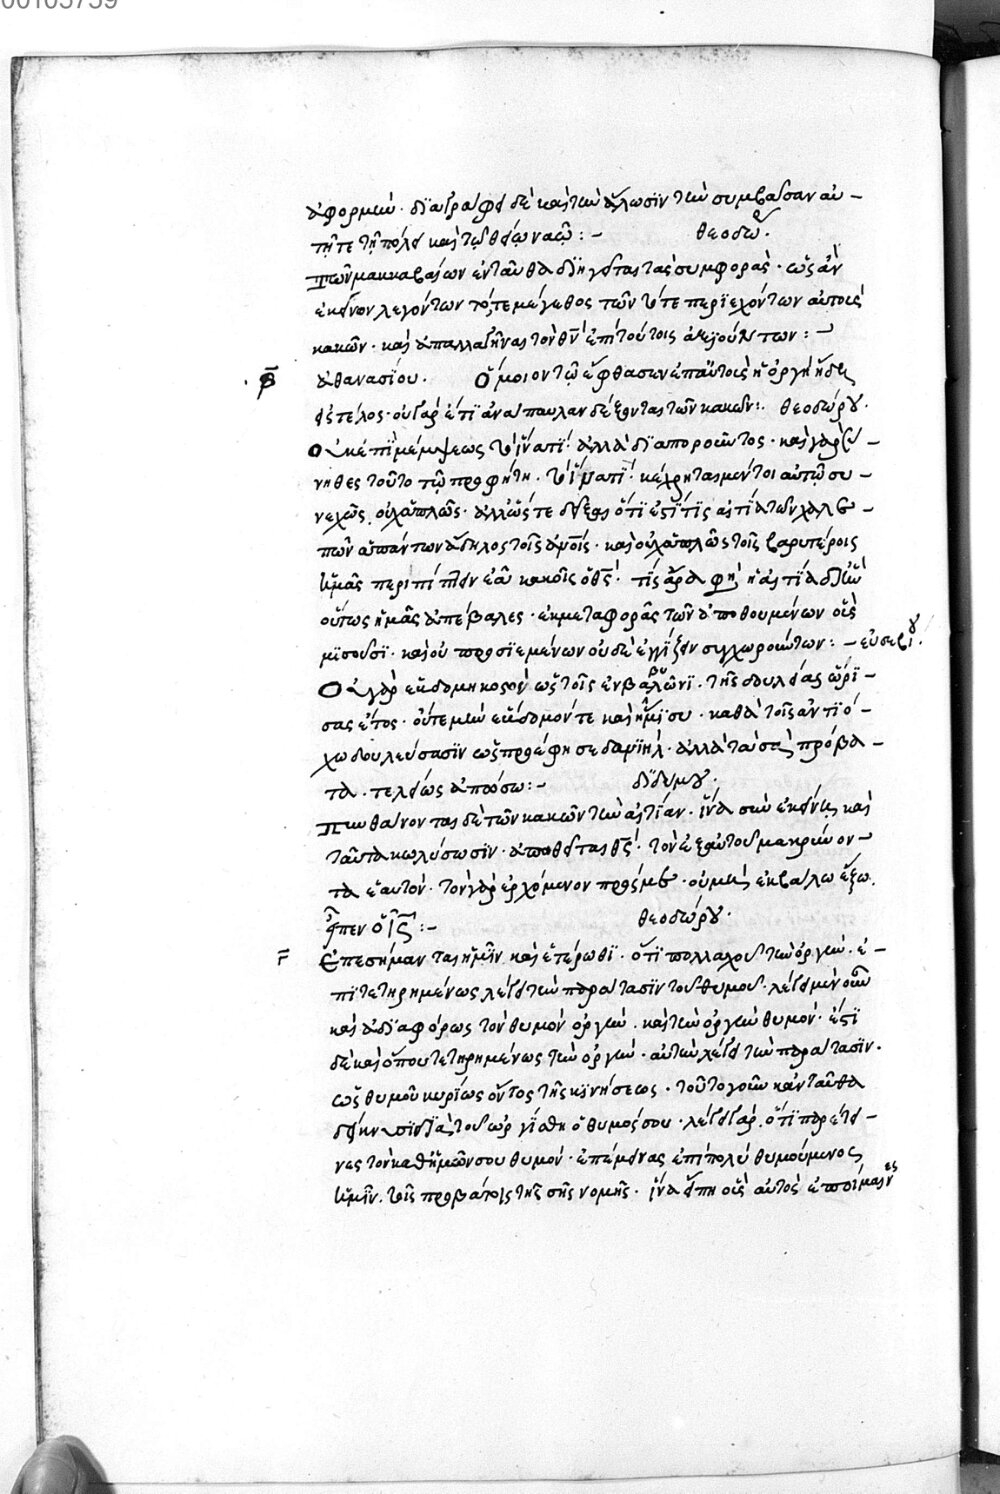 00105759
ἀφορμὴν· διαγράφει δὲ καὶ τὴν ἅλωσιν τὴν συμβᾶσαν αὐ-
τῇ τε τῇ πόλει καὶ τῷ θείῳ ναῷ :- θεοδω.
Τῶν μακκαβαίων ἐνταῦθα διηγεῖται τὰς συμφορὰς· ὡς ἂν
ἐκείνων λεγόντων τό,τε μέγεθος τῶν τότε περιεχόντων αὐτοὺς
κακῶν· καὶ ἀπαλλαγῆναι τὸν θν ἐπὶ τούτοις ἀξιούντων :-
β ἀθανασίου. Ὅμοιον τῷ ἔφθασεν ἐπ' αὐτοὺς ἡ ὀργὴ
εἰς τέλος· οὐ γὰρ ἔτι ἀνάπαυλαν δέχονται τῶν κακῶν :. θεοδώρου.
Οὐκ ἐπιμέμψεως τὸ ἱνατί· ἀλλὰ διαποροῦντος· καὶ γὰρ συ-
νηθες τοῦτο τῷ προφήτῃ. τὸ ἱνατί· κέχρηται μέντοι αὐτῷ συ-
νεχῶς, οὐχ ἁπλῶς· ἀλλ' ὥστε δεῖξαι ὅτι ἐστί τις αἰτία τῶν χαλε-
πῶν ἁπάντων ἄδηλος τοῖς ἀνοις· καὶ οὐχ ἁπλῶς τοῖς βαρυτέροις
ἡμᾶς περιπίπτειν ἐᾶ κακοῖς ὁ θς· τίς ἄρα φη ἡ αἰτία δι' ἣν
οὕτως ἡμᾶς ἀπέβαλες· ἐκ μεταφορᾶς τῶν ἀπωθουμένων οὓς
μισοῦσι· καὶ οὐ προσιεμένων οὐδὲ ἐγγίζειν συγχωρούντων :- εὐσεβίου.
Οὐ γὰρ ἑβδομηκοστὸν ὡς τοῖς ἐν βαβυλῶνι· τῆς δουλείας ὥρι-
σας ἔτος· οὔτε μὴν ἕβδομόν τε καὶ ἥμισυ· καθὰ τοῖς ἀντιό-
χω δουλεύσασιν ὡς προέφησε δανιὴλ· ἀλλὰ ταῦτα πρόβα-
τα. τελείως ἀπώσω :- διδύμου.
Πυνθάνονται δὲ τῶν κακῶν τὴν αἰτίαν. ἵνα σὺν ἐκείνοις καὶ
ταῦτα κωλύσωσιν· ἀπωθεῖται θς· τὸν ἐξ αὐτοῦ μακρύνον-
τα ἑαυτόν· τὸν γὰρ ἐρχόμενον πρός με· οὐ μὴ ἐκβάλω ἔξω.
εἶπεν ὁ ις :- θεοδώρου.
Γ Ἐπεσήμανται ἡμῖν καὶ ἑτέρωθι· ὅτι πολλαχοῦ τὴν ὀργὴν· ἐ-
πιτετηρημένως λέγει τὴν παράτασιν τοῦ θυμοῦ· λέγει μὲν οὖν
καὶ ἀδιαφόρως τὸν θυμὸν ὀργὴν. καὶ τὴν ὀργὴν θυμόν· ἔστι
δὲ καὶ ὅπου τετηρημένως τὴν ὀργὴν· αὐτὴν λέγει τὴν παράτασιν.
ὡς θυμοῦ κυρίως ὄντος τῆς κινήσεως· τοῦτο γοῦν κἀνταῦθα
δείκνυσι διὰ τοῦ ὠργίσθη ὁ θυμός σου· λέγει γάρ, ὅτι παρέτει-
νες τὸν καθ' ἡμῶν σου θυμόν· ἐπέμεινας ἐπιπολὺ θυμούμενος
ἡμῖν. τοῖς προβάτοις τῆς σῆς νομῆς· ἵνα εἴπη οὓς αὐτὸς ἐποίμαινες